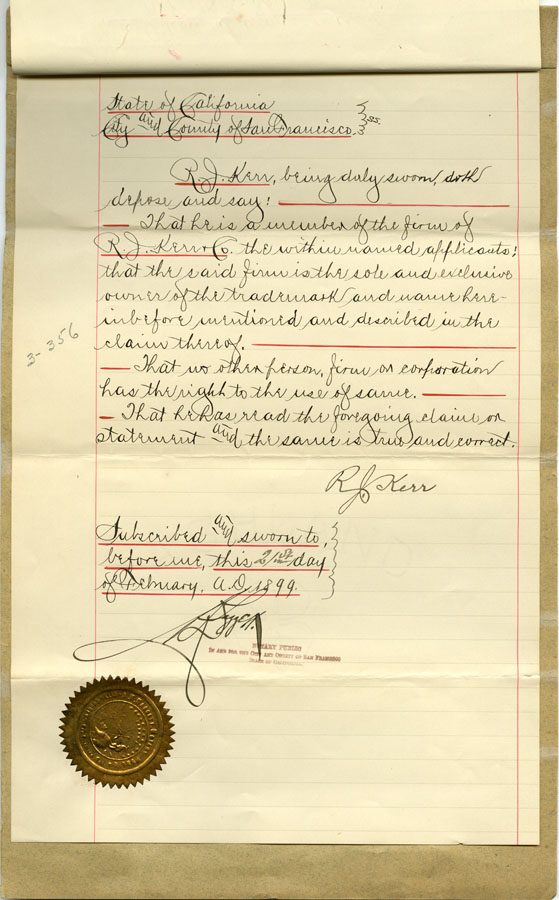 State of California
City and County of San Francisco. } ss.
R. J. Kerr, being duly sworn, doth
depose and say:
That he is a member of the firm of
R. J. Kerr & Co. the within named applicants;
that the said firm is the sole and exclusive
owner of the trademark and name here-
inbefore mentioned and described in the
claim thereof.
That no other person, firm or corporation
has the right to the use of same.
That he has read the foregoing claim or
statement and the same is true and correct.
3-356
R J Kerr
Subscribed and sworn to,
before me, this 21st day
of February, A.D. 1899.
NOTARY PUBLIC
IN AND FOR THE CITY AND COUNTY OF SAN FRANCISCO
STATE OF CALIFORNIA.